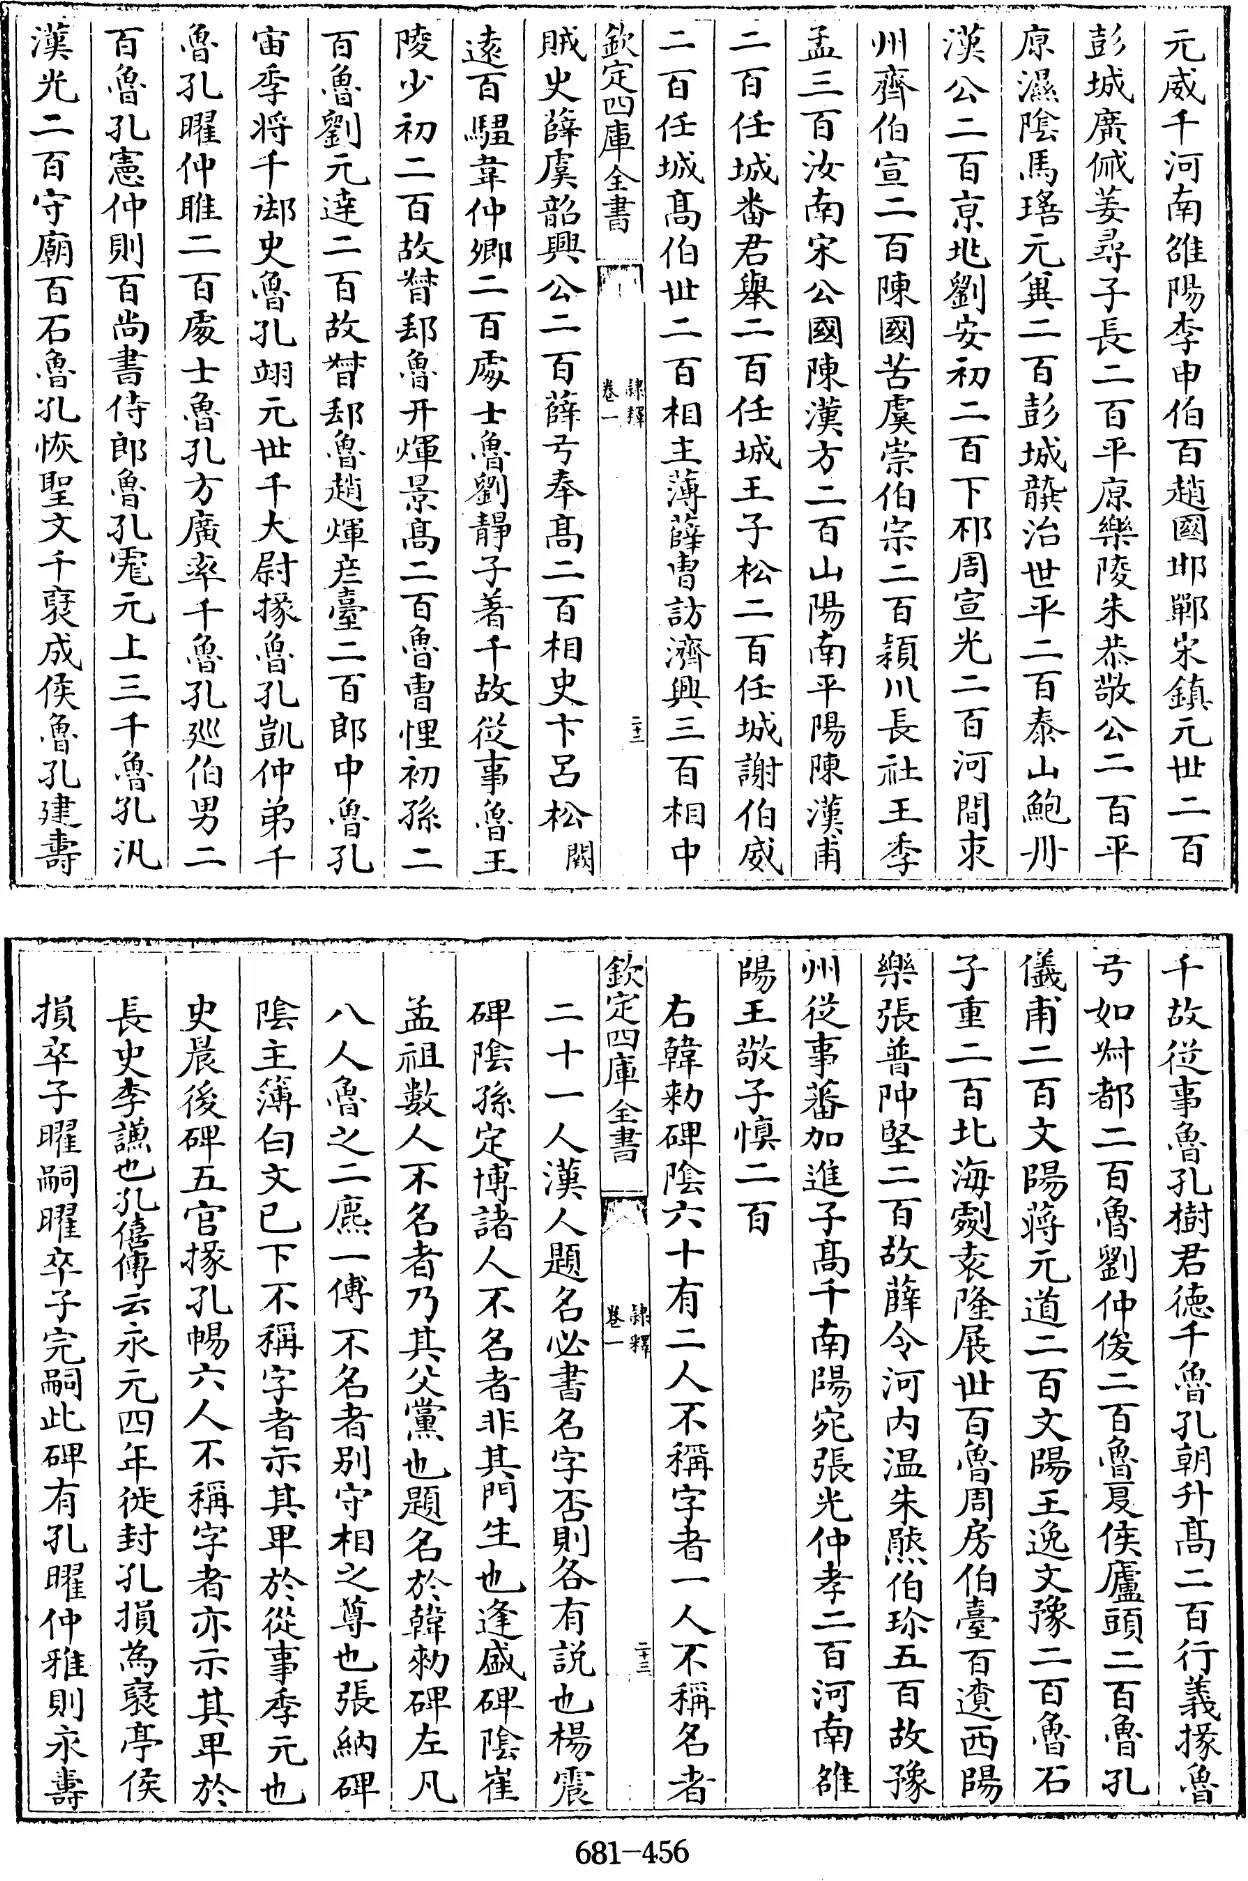 元威千河南雒陽李申伯百趙國邯鄲宋鎮元世二百
彭城廣戚姜尋子長二百平原樂陵朱恭敬公二百平
原濕陰馬瑤元冀二百彭城龔治世平二百泰山鮑丹
漢公二百京兆劉安初二百下邳周宣光二百河間束
州齊伯宣二百陳國苦虞崇伯宗二百潁川長社王季
孟三百汝南宋公國陳漢方二百山陽南平陽陳漢甫
二百任城番君舉二百任城王子松二百任城謝伯威
二百任城髙伯世二百相主薄薛曹訪濟興三百相中
欽定四庫全書
隸釋
卷一
二十二
賊史薛虞韶興公二百薛弓奉髙二百相史卞呂松闕
遠百騶韋仲卿二百處士魯劉靜子著千故従事魯王
陵少初二百故督郵魯幵煇景髙二百魯曹悝初孫二
百魯劉元達二百故督郵魯趙煇彦臺二百郎中魯孔
宙季将千御史魯孔翊元世千大尉掾魯孔凱仲弟千
魯孔曜仲雎二百處士魯孔方廣率千魯孔廵伯男二
百魯孔憲仲則百尚書侍郎魯孔元上三千魯孔汎
漢光二百守廟百石魯孔恢聖文千襃成侯魯孔建壽
千故従事魯孔樹君德千魯孔朝升髙二百行義掾魯
弓如都二百魯劉仲俊二百魯夏侯廬頭二百魯孔
儀甫二百文陽蔣元道二百文陽王逸文豫二百魯石
子重二百北海劇袁隆展世百魯周房伯臺百遺西陽
樂張普仲堅二百故薛令河内温朱熊伯珍五百故豫
州従事蕃加進子髙千南陽宛張光仲孝二百河南雒
陽王敬子慎二百
右韓勑碑陰六十有二人不稱字者一人不稱名者
欽定四庫全書
隸釋
卷一
二十三
二十一人漢人題名必書名字否則各有説也楊震
碑陰孫定博諸人不名者非其門生也逢盛碑陰崔
孟祖數人不名者乃其父黨也題名於韓勑碑左凡
八人魯之二麃一傅不名者别守相之尊也張納碑
陰主簿白文已下不稱字者示其卑於從事季元也
史晨後碑五官掾孔暢六人不稱字者亦示其卑於
長史李謙也孔僖傳云永元四年徙封孔損為襃亭侯
損卒子曜嗣曜卒子完嗣此碑有孔曜仲雅則永壽
681-456